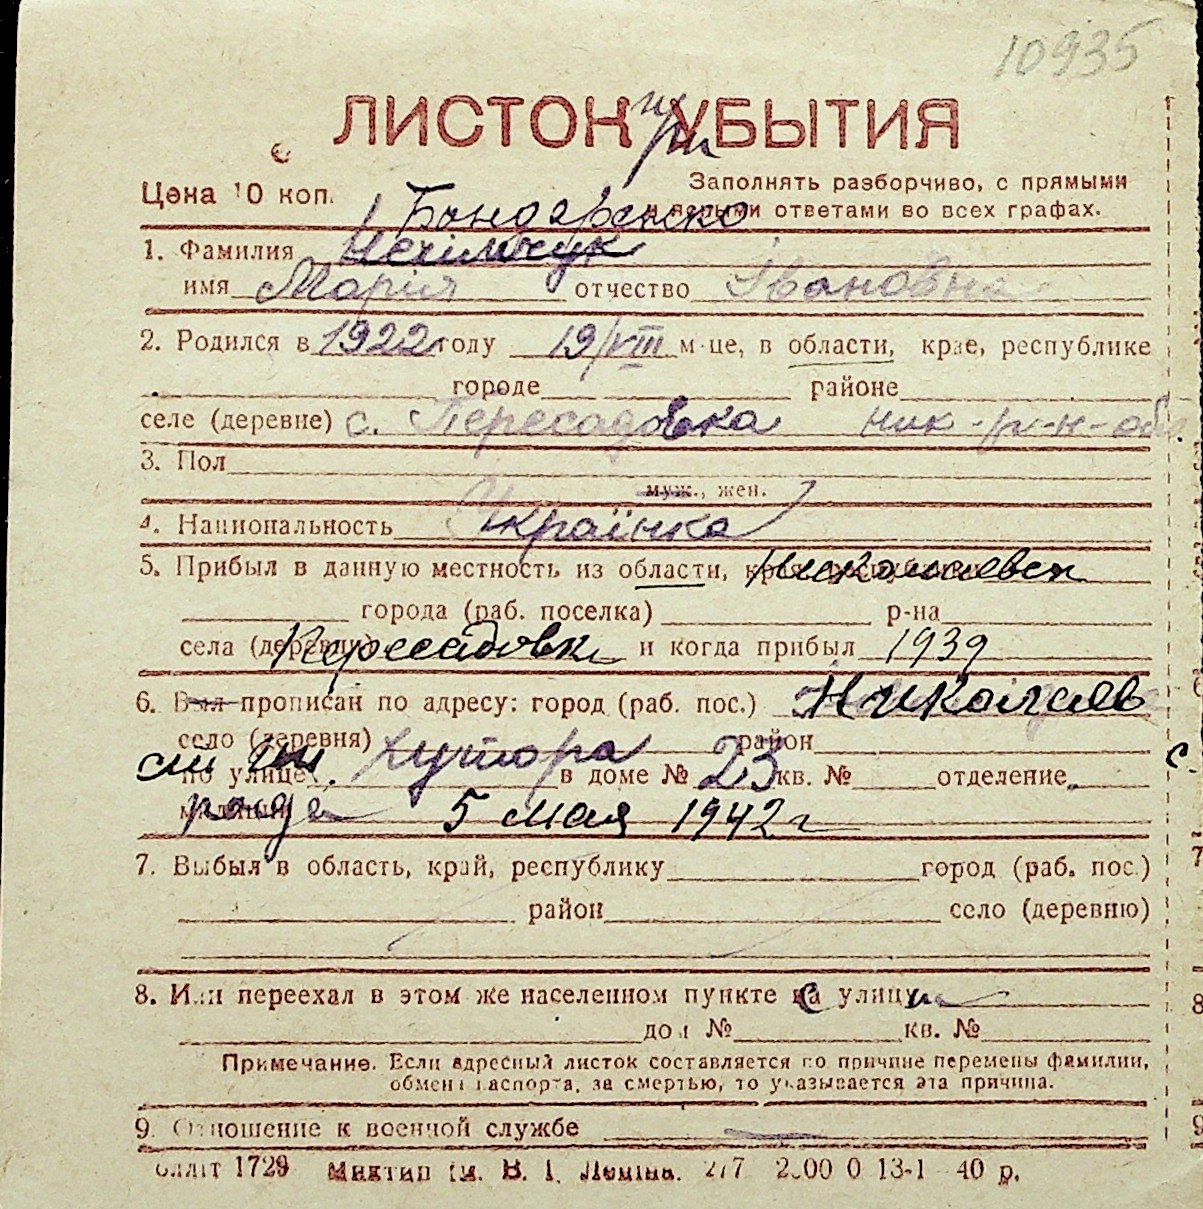 10935
ЛИСТОК при УБЫТИЯ
Цена 10 коп.
Заполнять разборчиво, с прямыми
и ясными ответами во всех графах.
Бондаренко
1. Фамилия
имя Марія отчество Івановна
2. Родился в 1922 году 19/VIII м-це, в области, крае, республике
городе районе
селе (деревне) с. Пересадовка ник-р-н-обл
3. Пол
муж., жен.
4. Национальность Українка
5. Прибыл в данную местность из области, края, Николаевск
города (раб. поселка) р-на
села (деревни) Пересадовк и когда прибыл 1939
6. Был прописан по адресу: город (раб. пос.) Николаев
село (деревня) хутора район
по улице в доме № 23 кв. № отделение
5 мая 1942 г
7. Выбыл в область, край, республику город (раб. пос.)
район село (деревню)
8. Или переехал в этом же населенном пункте с улицы
дом № кв. №
Примечание. Если адресный листок составляется по причине перемены фамилии,
обмена паспорта, за смертью, то указывается эта причина.
9. Отношение к военной службе
1729 Миктип ім. В. І. Леніна. 2/7 2.00 0 13-1 40 р.